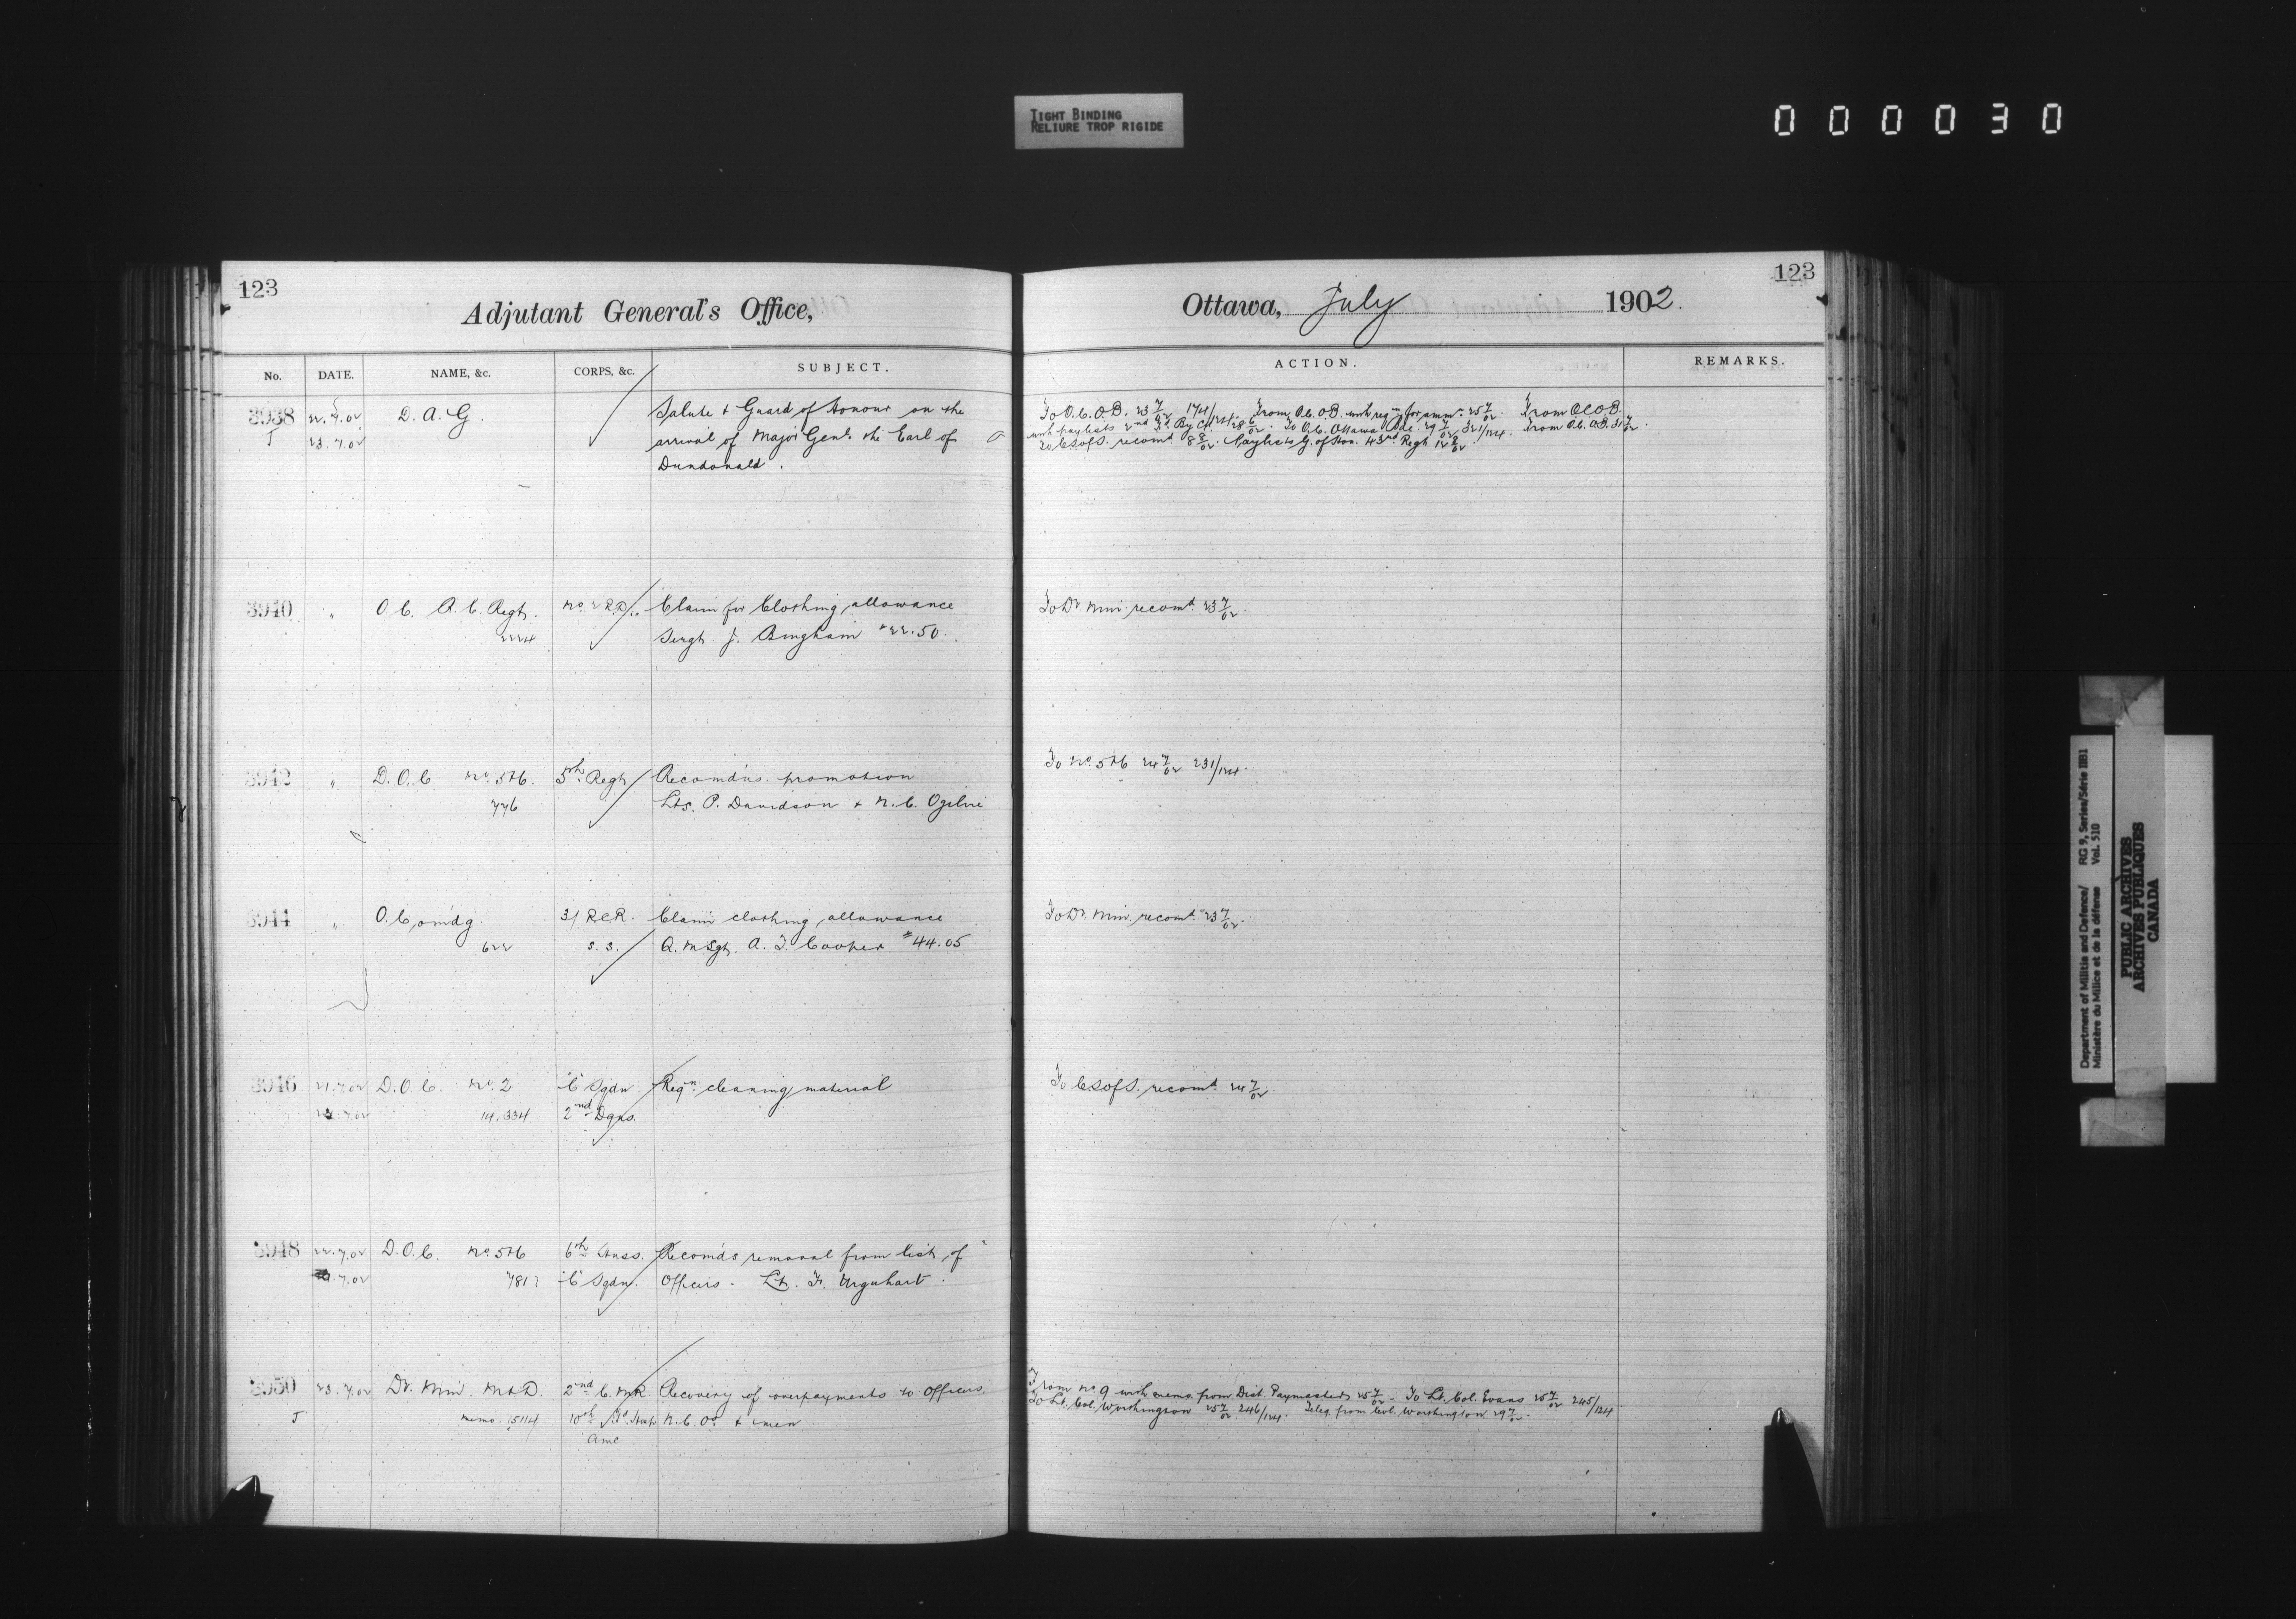 TIGHT BINDING
RELIURE TROP RIGIDE
000030
123
Adjutant General's Office,
No. DATE. NAME, &c. CORPS, &c. SUBJECT.
3938 22.7.02 D. A. G. Salute & Guard of Honour on the
J 23.7.02 arrival of Major Genl. the Earl of
Dundonald.
3940 " O.C. R.C. Regt. No. 2 R.D. Claim for Clothing allowance
2224 Sergt. J. Bingham $22.50.
3942 " D.O.C. No. 5&6. 5th Regt Recomd'ns. promotion
776 Lts. P. Davidson & N.C. Ogilvie
3944 " O. Comdg 3/ R.C.R. Claim clothing allowance
622 S.S. Q.M. Sgt. A. J. Cooper $44.05
3946 21.7.02 D.O.C. No. 2 "C" Sqdn. Reqn. cleaning material
7.02 14,334 2nd Dgns.
3948 22.7.02 D.O.C. No. 5&6 6th Huss. Recomds removal from list of
7.02 781 "C" Sqdn. Officers. Lt. F. Urquhart.
3950 23.7.02 Dr. Min. M&D. 2nd C.M.R. Recovery of overpayments to Officers
J memo. 15114 10th Fd. Hosp N.C.Os & men
AMC
123
Ottawa, July 1902.
ACTION. REMARKS.
To O.C. O.B. 23/7/02 174/124. From O.C. O.B. with reqn for ammn. 25/7/02. From O.C.O.B.
with paylists 2nd Fd. By C.A. To O.C. Ottawa Bde. 29/7/02 321/124. From O.C. O.B. 31/7/02.
To C.S. of S. recomd. 8/8/02. Paylists G. of Hon. 43rd Regt 12/8/02
To Dr. Min. recomd. 23/7/02.
To No. 5&6 24/7/02 231/124.
To Dr. Min. recomd. 23/7/02.
To C.S. of S. recomd. 24/7/02.
From No 9 with memo. from Dist. Paymaster 25/7/02. To Lt. Col. Evans 25/7/02 245/124
To Lt. Col. Worthington 25/7/02 246/124. Teleg. from Col. Worthington 29/7/02.
Department of Militia and Defence/ RG 9, Series/Série IIB1
Ministère du Milice et de la défense Vol. 510
PUBLIC ARCHIVES
ARCHIVES PUBLIQUES
CANADA